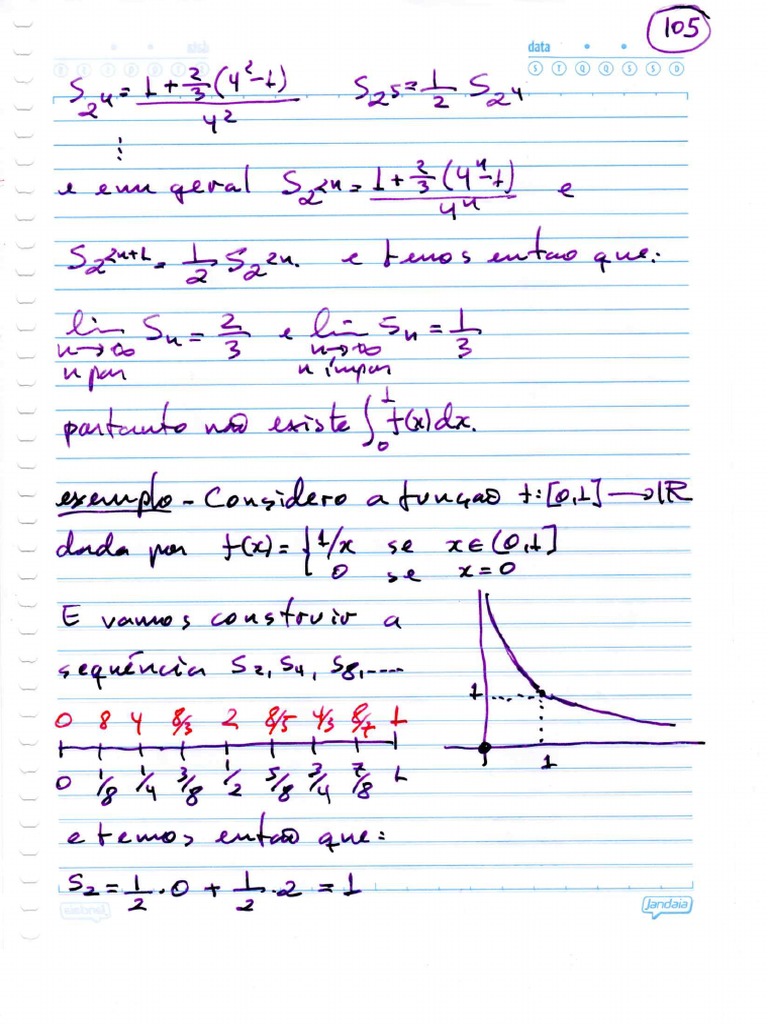 105
data
S T Q Q S S D
S_{2^4} = \frac{1 + \frac{2}{3}(4^2 - 1)}{4^2}   S_{2^5} = \frac{1}{2} S_{2^4}
⋮
e em geral S_{2^{2n}} = \frac{1 + \frac{2}{3}(4^n - 1)}{4^n} e
S_{2^{2n+1}} = \frac{1}{2} S_{2^{2n}}. e temos então que:
\lim_{n→∞, n par} S_n = \frac{2}{3} e \lim_{n→∞, n ímpar} S_n = \frac{1}{3}
portanto não existe ∫_0^1 f(x)dx.
exemplo - Considero a função f: [0,1] → ℝ
dada por f(x) = { 1/x se x ∈ (0,1]
0 se x = 0
E vamos construir a
sequência S_2, S_4, S_8, ....
1
1
0 8 4 8/3 2 8/5 4/3 8/7 1
0 1/8 1/4 3/8 1/2 5/8 3/4 7/8 1
e temos então que:
S_2 = \frac{1}{2} · 0 + \frac{1}{2} · 2 = 1
Jandaia